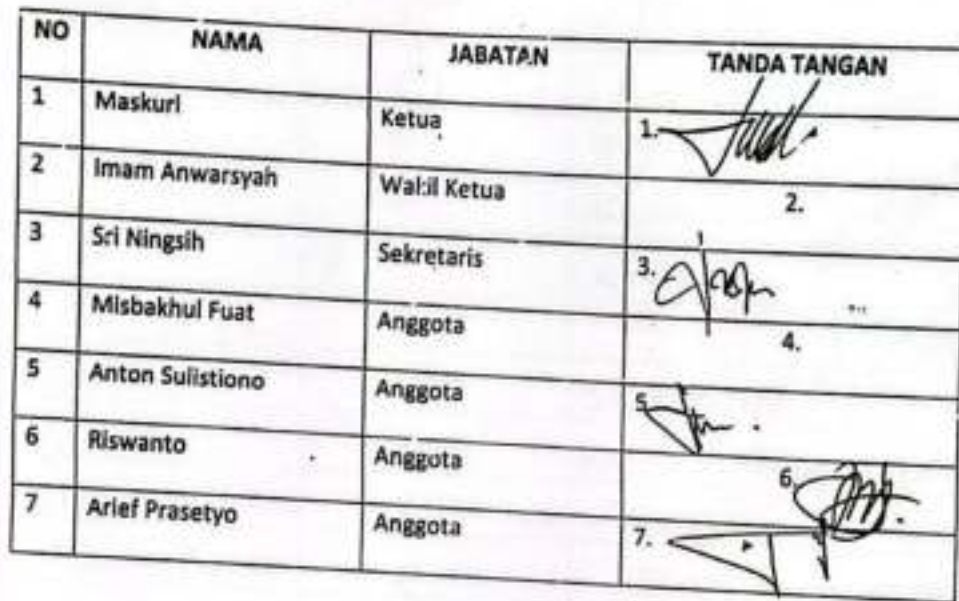 NO NAMA JABATAN TANDA TANGAN
1 Maskuri Ketua 1.
2 Imam Anwarsyah Wakil Ketua 2.
3 Sri Ningsih Sekretaris 3.
4 Misbakhul Fuat Anggota 4.
5 Anton Sulistiono Anggota 5
6 Riswanto Anggota 6
7 Arief Prasetyo Anggota 7.